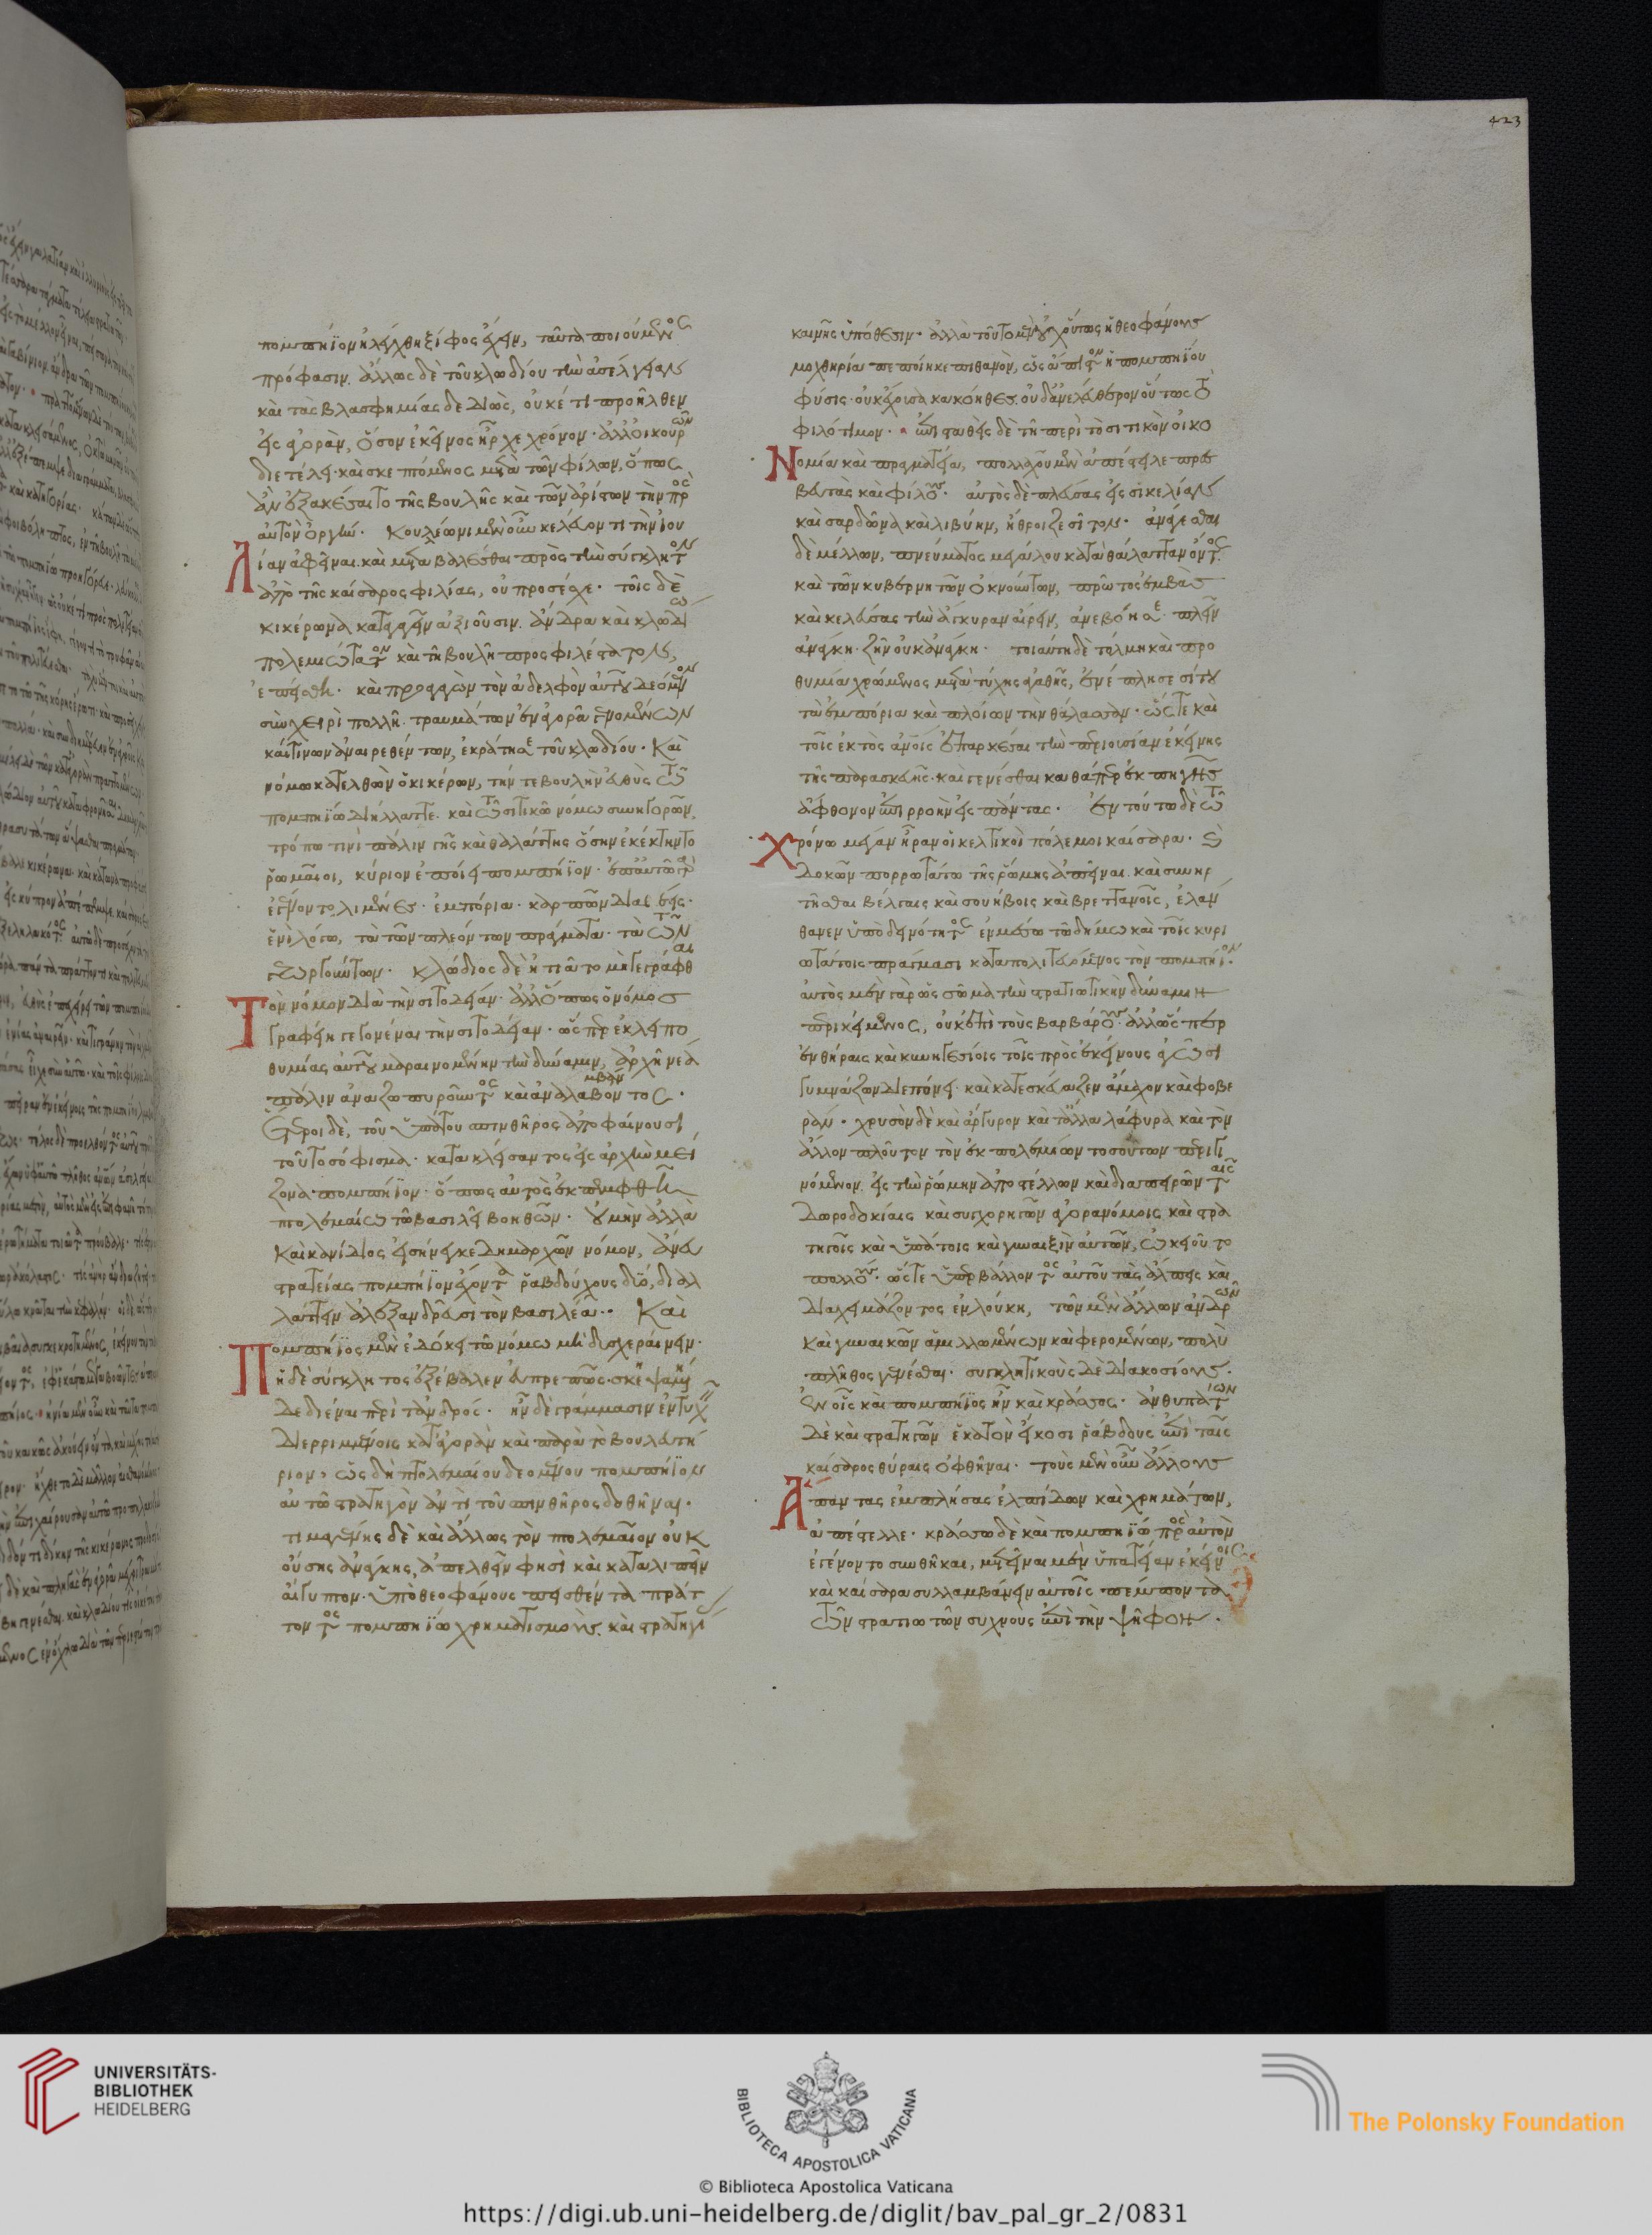 πομπήϊον ἠλέγχθη ξίφος ἔχων, ταῦτα ποιούμενος
πρόφασιν. ἄλλως δὲ τοῦ κλωδίου τὴν ἀσέλγειαν
καὶ τὰς βλασφημίας δεδιὼς, οὐκέτι προῆλθεν
εἰς ἀγορὰν, ὅσον ἐκεῖνος ἦρχε χρόνον· ἀλλ' οἰκουρῶν
διετέλει· καὶ σκεπτόμενος μετὰ τῶν φίλων, ὅπως
ἂν ἐξακέσαιτο τῆς βουλῆς καὶ τῶν ἀρίστων τὴν πρὸς
αὐτὸν ὀργήν. Κουλέωνι μὲν οὖν κελεύοντι τὴν ἰου
Λίαν ἀφεῖναι. καὶ μεταβαλέσθαι πρὸς τὴν σύγκλητον
ἀπὸ τῆς καίσαρος φιλίας, οὐ προσέσχε· τοῖς δὲ
κικέρωνα καταγαγεῖν ἀξιοῦσιν. ἄνδρα καὶ κλωδίω
πολεμιώτατον καὶ τῆ βουλῆ προσφιλέστατον,
ἐπείσθη· καὶ προαγαγὼν τὸν ἀδελφὸν αὐτοῦ δεόμενον
σὺν χειρὶ πολλῆ. τραυμάτων ἐν ἀγορᾶ γενομένων
καί τινων ἀναιρεθέντων, ἐκράτησε τοῦ κλωδίου· Καὶ
νόμω κατελθὼν ὁ κικέρων, τήν τε βουλὴν εὐθὺς τῶ
πομπηΐω διήλλαττε. καὶ τῶ σιτικῶ νόμω συνηγορῶν,
τρόπω τινὶ πάλιν γῆς καὶ θαλάττης ὅσην ἐκέκτηντο
ῥωμαῖοι, κύριον ἐποίει πομπήϊον· ἐπ' αὐτῶ γὰρ
ἐγένοντο λιμένες· ἐμπόρια· καρπῶν διαθέσεις·
ἑνὶ λόγω, τὰ τῶν πλεόντων πράγματα· τὰ τῶν
γεωργούντων· κλώδιος δὲ ἠτιᾶτο μὴ γεγράφθαι
Τὸν νόμον διὰ τὴν σιτοδείαν· ἀλλ' ὅπως ὁ νόμος
γραφείη γεγονέναι τὴν σιτοδείαν· ὥσπερ ἐκ λειπο
θυμίας αὐτοῦ μαραινομένην τὴν δύναμιν, ἀρχῆ νέα
πάλιν ἀναζωπυροῦντος καὶ ἀναλαμβάνοντος·
ἕτεροι δὲ, τοῦ ὑπάτου σπινθῆρος ἀποφαίνουσι
τοῦτο σόφισμα· κατακλείσαντος εἰς ἀρχὴν μεί
ζονα πομπήϊον· ὅπως αὐτὸς ἐκπεμφθῆ
πτολεμαίω τῶ βασιλεῖ βοηθῶν· οὐ μὴν ἀλλὰ
Καὶ κανίδιος εἰσήνεγκε δημαρχῶν νόμον, ἄνευ
στρατείας πομπήϊον ἔχοντα ῥαβδούχους δύο, διαλ
λάττειν ἀλεξανδρεῦσι τὸν βασιλέα·· Καὶ
Πομπήϊος μὲν ἐδόκει τῶ νόμω μὴ δυσχεραίνειν·
ἡ δὲ σύγκλητος ἐξέβαλεν εὐπρεπῶς· σκηψαμένη
δεδιέναι περὶ τἀνδρός· ἦν δὲ γράμμασιν ἐντυχεῖν
διερριμμένοις κατ' ἀγορὰν καὶ παρὰ τὸ βουλευτή
ριον, ὡς δὴ πτολεμαίου δεομένου πομπήϊον
αὐτῶ στρατηγὸν ἀντὶ τοῦ σπινθῆρος δοθῆναι·
τιμαγένης δὲ καὶ ἄλλως τὸν πτολεμαῖον οὐκ
οὔσης ἀνάγκης, ἀπελθεῖν φησὶ καὶ καταλιπεῖν
αἴγυπτον· ὑπὸ θεοφάνους πεισθέντα πράτ
τοντος πομπηΐω χρηματισμοὺς. καὶ στρατηγί
καινῆς ὑπόθεσιν· ἀλλὰ τοῦτο μὲν οὐχ οὕτως ἡ θεοφάνους
μοχθηρία πεποίηκε πιθανὸν, ὡς ἄπιστον ἡ πομπηΐου
φύσις· οὐκ ἔχουσα κακόηθες οὐδ' ἀνελεύθερον οὕτως τὸ
φιλότιμον· ἐπισταθεὶς δὲ τῆ περὶ τὸ σιτικὸν οἰκο
Νομία καὶ πραγματεία, πολλαχοῦ μὲν ἀπέστειλε πρεσ
βευτὰς καὶ φίλους· αὐτὸς δὲ πλεύσας εἰς σικελίαν
καὶ σαρδῶνα καὶ λιβύην, ἤθροιζε σῖτον· ἀνάγεσθαι
δὲ μέλλων, πνεύματος μεγάλου κατὰ θάλατταν ὄντος
καὶ τῶν κυβερνητῶν ὀκνούντων, πρῶτος ἐμβὰς
καὶ κελεύσας τὴν ἄγκυραν αἴρειν, ἀνεβόησε· πλεῖν
ἀνάγκη· ζῆν οὐκ ἀνάγκη· τοιαύτη δὲ τόλμη καὶ προ
θυμία χρώμενος μετὰ τύχης ἀγαθῆς, ἐνέπλησε σίτου
τὰ ἐμπόρια καὶ πλοίων τὴν θάλασσαν· ὥστε καὶ
τοῖς ἐκτὸς ἀνοις ἐπαρκέσαι τὴν περιουσίαν ἐκείνης
τῆς παρασκευῆς· καὶ γενέσθαι καθάπερ ἐκ πηγῆς
ἄφθονον ἐπιρροὴν εἰς πάντας· ἐν τούτω δὲ τῶ
Χρόνω μέγαν ἦραν οἱ κελτικοὶ πόλεμοι καίσαρα· καὶ
δοκῶν πορρωτάτω τῆς ῥώμης ἀπεῖναι. καὶ συνηρ
τῆσθαι βέλγαις καὶ σουήβοις καὶ βρεττανοῖς, ἐλάν
θανεν ὑπὸ δεινότητος ἐν μέσω τῶ δήμω καὶ τοῖς κυρι
ωτάτοις πράγμασι καταπολιτευόμενος τὸν πομπήϊον·
αὐτὸς μὲν γὰρ ὡς σῶμα τὴν στρατιωτικὴν δύναμιν
περικείμενος, οὐκ ἐπὶ τοὺς βαρβάρους· ἀλλ' ὥσπερ
ἐν θήραις καὶ κυνηγεσίοις τοῖς πρὸς ἐκείνους ἀγῶσι
γυμνάζων διεπόνει· καὶ κατεσκεύαζεν ἄμαχον καὶ φοβε
ράν· χρυσὸν δὲ καὶ ἄργυρον καὶ τἄλλα λάφυρα καὶ τὸν
ἄλλον πλοῦτον τὸν ἐκ πολεμίων τοσούτων περιγι
νόμενον. εἰς τὴν ῥώμην ἀποστέλλων καὶ διαπειρῶν ταῖς
δωροδοκίαις καὶ συγχορηγῶν ἀγορανόμοις καὶ στρα
τηγοῖς καὶ ὑπάτοις καὶ γυναιξὶν αὐτῶν, ὠκειοῦτο
πολλούς· ὥστε ὑπερβάλλοντος αὐτοῦ τὰς ἄλπεις καὶ
διαχειμάζοντος ἐν λούκη, τῶν μὲν ἄλλων ἀνδρῶν
καὶ γυναικῶν ἁμιλλωμένων καὶ φερομένων, πολὺ
πλῆθος γενέσθαι· συγκλητικοὺς δὲ διακοσίους·
ἐν οἷς καὶ πομπήϊος ἦν καὶ κράσσος· ἀνθυπάτων
δὲ καὶ στρατηγῶν ἑκατὸν εἴκοσι ῥάβδους ἐπὶ ταῖς
καίσαρος θύραις ὀφθῆναι· τοὺς μὲν οὖν ἄλλους
Ἅπαντας ἐμπλήσας ἐλπίδων καὶ χρημάτων,
ἀπέστελλε· κράσσω δὲ καὶ πομπηΐω πρὸς αὐτὸν
ἐγένοντο συνθῆκαι, μετεῖναι μὲν ὑπατείαν ἐκείνοις
καὶ καίσαρα συλλαμβάνειν αὐτοῖς πέμποντα
τῶν στρατιωτῶν συχνοὺς ἐπὶ τὴν ψῆφον·
423
UNIVERSITÄTS-
BIBLIOTHEK
HEIDELBERG
BIBLIOTECA APOSTOLICA VATICANA
The Polonsky Foundation
© Biblioteca Apostolica Vaticana
https://digi.ub.uni-heidelberg.de/diglit/bav_pal_gr_2/0831